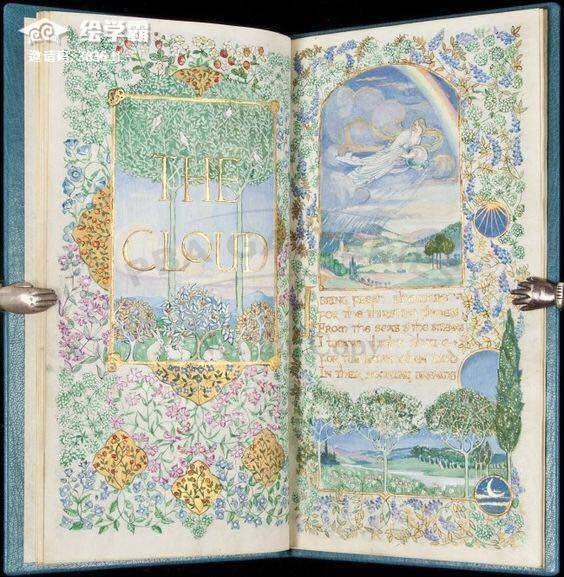 绘学霸
邀请码:
THE
CLOUD
I BRING fresh showers
for the thirsting flowers
From the seas & the streams
I bear light shade
for the leaves when laid
In their noonday dreams